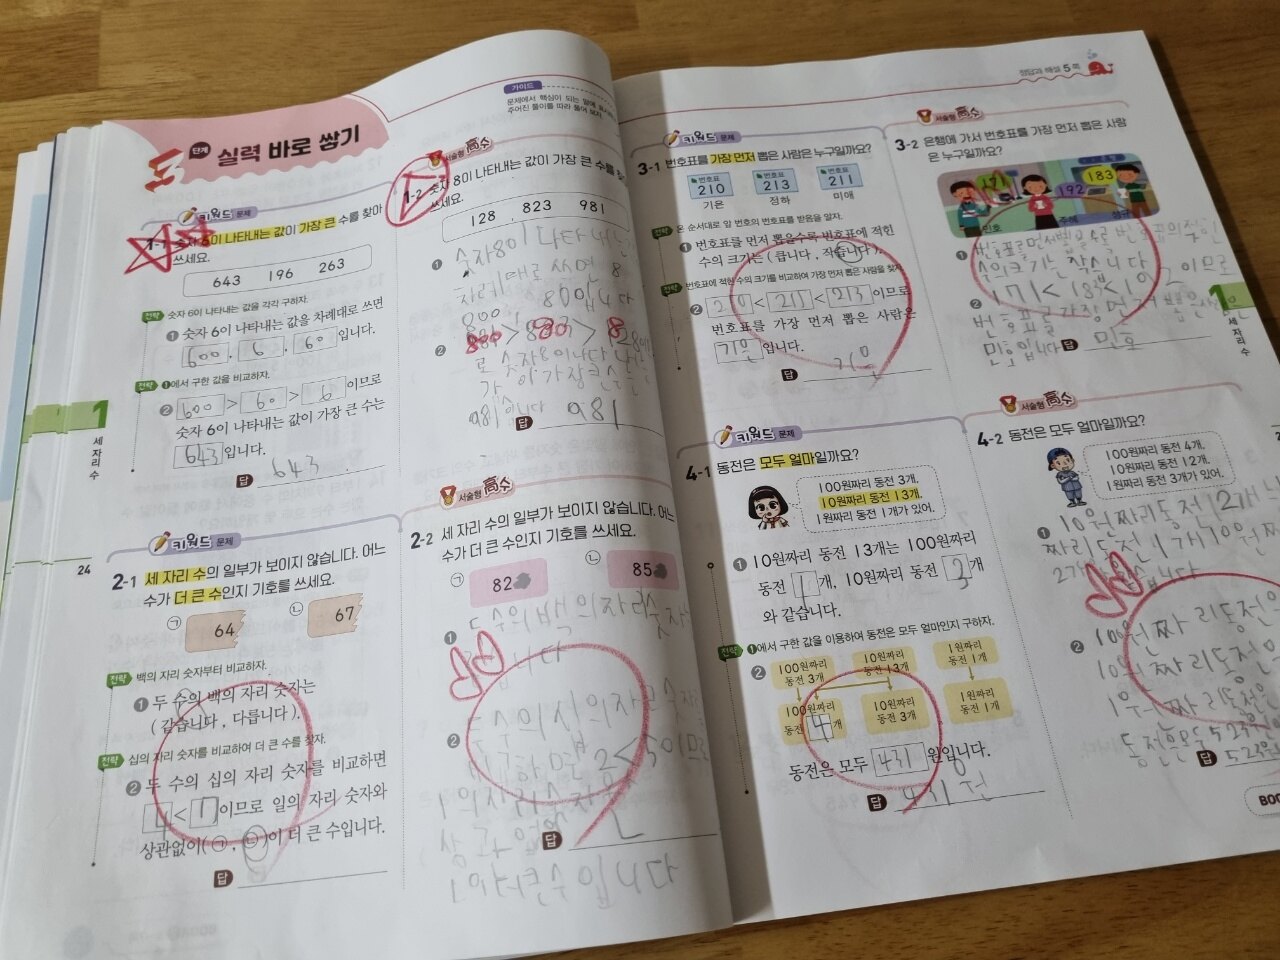 3 단계 실력 바로 쌓기
가이드
문제에서 핵심이 되는 말에
주어진 풀이를 따라 풀어 보자.
키워드 문제
숫자 6이 나타내는 값이 가장 큰 수를 찾아
쓰세요.
643 196 263
전략 숫자 6이 나타내는 값을 각각 구하자.
❶ 숫자 6이 나타내는 값을 차례대로 쓰면
600, 6, 60입니다.
전략 ❶에서 구한 값을 비교하자.
❷ 600 > 60 > 6이므로
숫자 6이 나타내는 값이 가장 큰 수는
643입니다.
답 643
1
세 자리 수
24
서술형 高수
1-2 숫자 8이 나타내는 값이 가장 큰 수를
쓰세요.
128 823 981
❶ 숫자8이 나타내는
❷
981입니다
답 981
키워드 문제
2-1 세 자리 수의 일부가 보이지 않습니다. 어느
수가 더 큰 수인지 기호를 쓰세요.
㉠ 64 ㉡ 67
전략 백의 자리 숫자부터 비교하자.
❶ 두 수의 백의 자리 숫자는
(같습니다, 다릅니다).
전략 십의 자리 숫자를 비교하여 더 큰 수를 찾자.
❷ 두 수의 십의 자리 숫자를 비교하면
4 <이므로 일의 자리 숫자와
상관없이(㉠, ㉡)이 더 큰 수입니다.
답
서술형 高수
2-2 세 자리 수의 일부가 보이지 않습니다. 어느
수가 더 큰 수인지 기호를 쓰세요.
㉠ 82 ㉡ 85
❶ 두 수의 백의 자리 숫자는
❷ 두 수의 십의 자리 숫자를
2<5이므로
답
더 큰 수입니다
정답과 해설 5쪽
키워드 문제
3-1 번호표를 가장 먼저 뽑은 사람은 누구일까요?
번호표 210 번호표 213 번호표 211
기은 정하 미애
전략 온 순서대로 앞 번호의 번호표를 받음을 알자.
❶ 번호표를 먼저 뽑을수록 번호표에 적힌
수의 크기는 (큽니다, 작습니다).
전략 번호표에 적힌 수의 크기를 비교하여 가장 먼저 뽑은 사람을 찾자.
❷ 210 < 211 < 213 이므로
번호표를 가장 먼저 뽑은 사람은
기은입니다.
답 기은
서술형 高수
3-2 은행에 가서 번호표를 가장 먼저 뽑은 사람
은 누구일까요?
171 192 183
민호 주혜 성규
❶ 번호표를 먼저 뽑을수록 번호표의 적힌
수의 크기는 작습니다
❷ 171<183<192이므로
번호표를 가장 먼저 뽑은 사람은
민호입니다 답 민호
1
세 자리 수
키워드 문제
4-1 동전은 모두 얼마일까요?
100원짜리 동전 3개,
10원짜리 동전 13개,
1원짜리 동전 1개가 있어.
❶ 10원짜리 동전 13개는 100원짜리
동전 1개, 10원짜리 동전 3개
와 같습니다.
전략 ❶에서 구한 값을 이용하여 동전은 모두 얼마인지 구하자.
❷ 100원짜리 동전 3개 10원짜리 동전 13개 1원짜리 동전 1개
100원짜리 동전 4개 10원짜리 동전 3개 1원짜리 동전 1개
동전은 모두 431 원입니다.
답 431
서술형 高수
4-2 동전은 모두 얼마일까요?
100원짜리 동전 4개,
10원짜리 동전 12개,
1원짜리 동전 3개가 있어.
❶ 10원짜리 동전 12개
짜리 동전 1개 10원짜
❷ 100원짜리 동전
10원짜리 동전
1원짜리 동전
동전은 모두 523원
답 523원
BOO